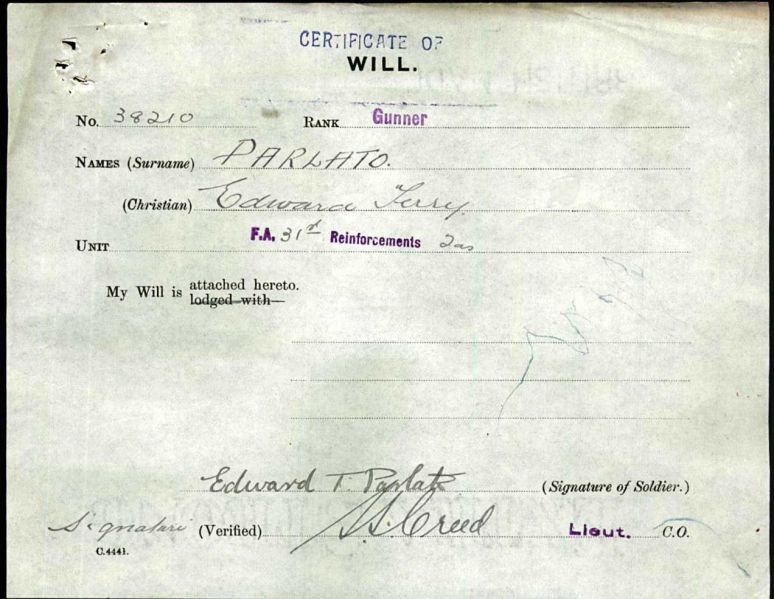 CERTIFICATE OF
WILL.
No. 38210 RANK Gunner
NAMES (Surname) PARLATO.
(Christian) Edward Terry.
UNIT F.A. 31st Reinforcements
My Will is attached hereto.
lodged with
Edward T. Parlato (Signature of Soldier.)
Signature (Verified) S.S. Creed Lieut. C.O.
C.4441.